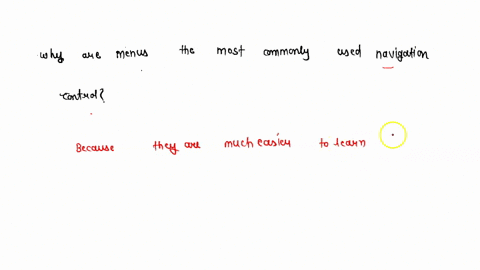 why are menus the most commonly used navigation
control?
Because they are much easier to learn